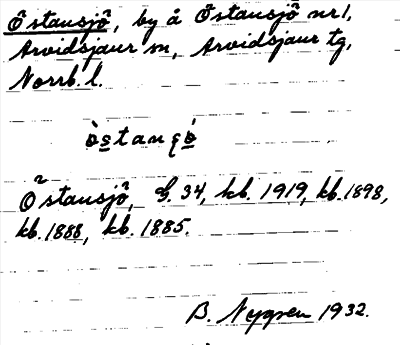 Östansjö, by å Östansjö nr 1,
Arvidsjaur sn, Arvidsjaur tg,
Norrb. l.
òstanʂö̀
Östansjö, G. 34, kb. 1919, kb. 1898,
kb. 1888, kb. 1885.
B. Nygren 1932.